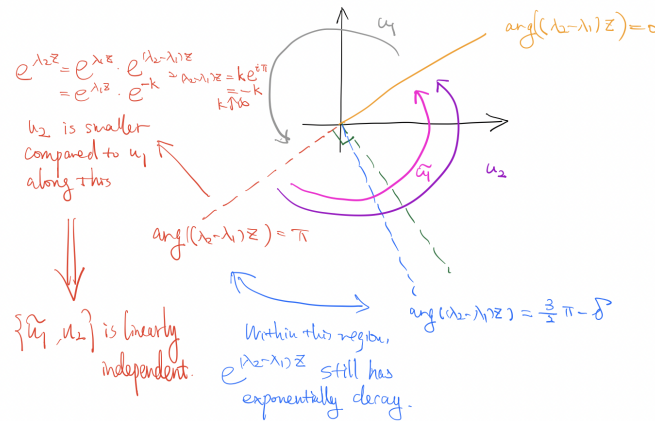 u₁
arg((λ₂-λ₁)z) = 0
e^{λ₂z} = e^{λ₁z} · e^{(λ₂-λ₁)z}
= e^{λ₁z} · e^{-k}
(λ₂-λ₁)z = ke^{iπ}
= -k
k↑∞
u₂ is smaller
compared to u₁
along this
ũ₁
u₂
arg((λ₂-λ₁)z) = π
arg((λ₂-λ₁)z) = 3/2 π - δ
{ũ₁, u₂} is linearly
independent.
Within this region,
e^{(λ₂-λ₁)z} still has
exponentially decay.